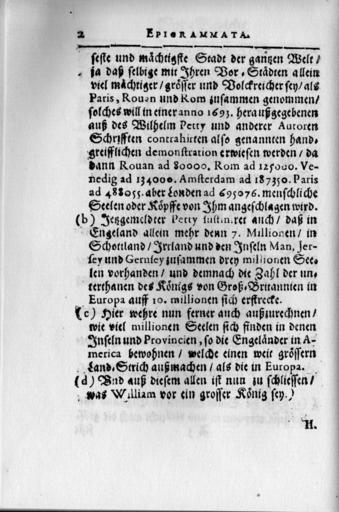 2 EPIGRAMMATA.
feste und mächtigste Stadt der gantzen Welt /
ja daß selbige mit Ihren Vor-Städten allein
viel mächtiger / grösser und Volckreicher sey / als
Paris, Rouan und Rom zusammen genommen /
solches will in einer anno 1693. heraußgegebenen
auß des Wilhelm Petty und anderer Autoren
Schrifften contrahirten also genannten hand-
greifflichen demonstration erwiesen werden / da
dann Rouan ad 80000, Rom ad 125000. Ve-
nedig ad 134000. Amsterdam ad 187350. Paris
ad 488055. aber Londen ad 695076. menschliche
Seelen oder Köpffe von Jhm angeschlagen wird.
(b) Jetzgemeldter Petty sustiniret auch / daß in
Engeland allein mehr denn 7. Millionen / in
Schottland / Jrrland und den Jnseln Man, Jer-
sey und Gernsey zusammen drey millionen See-
len vorhanden / und demnach die Zahl der un-
terthanen des Königs von Groß-Britannien in
Europa auff 10. millionen sich erstrecke.
(c) Hier wehre nun ferner auch außzurechnen /
wie viel millionen Seelen sich finden in denen
Jnseln und Provincien, so die Engeländer in A-
merica bewohnen / welche einen weit grössern
Land-Strich außmachen / als die in Europa.
(d) Und auß diesem allen ist nun zu schliessen /
was William vor ein grosser König sey.)
H.